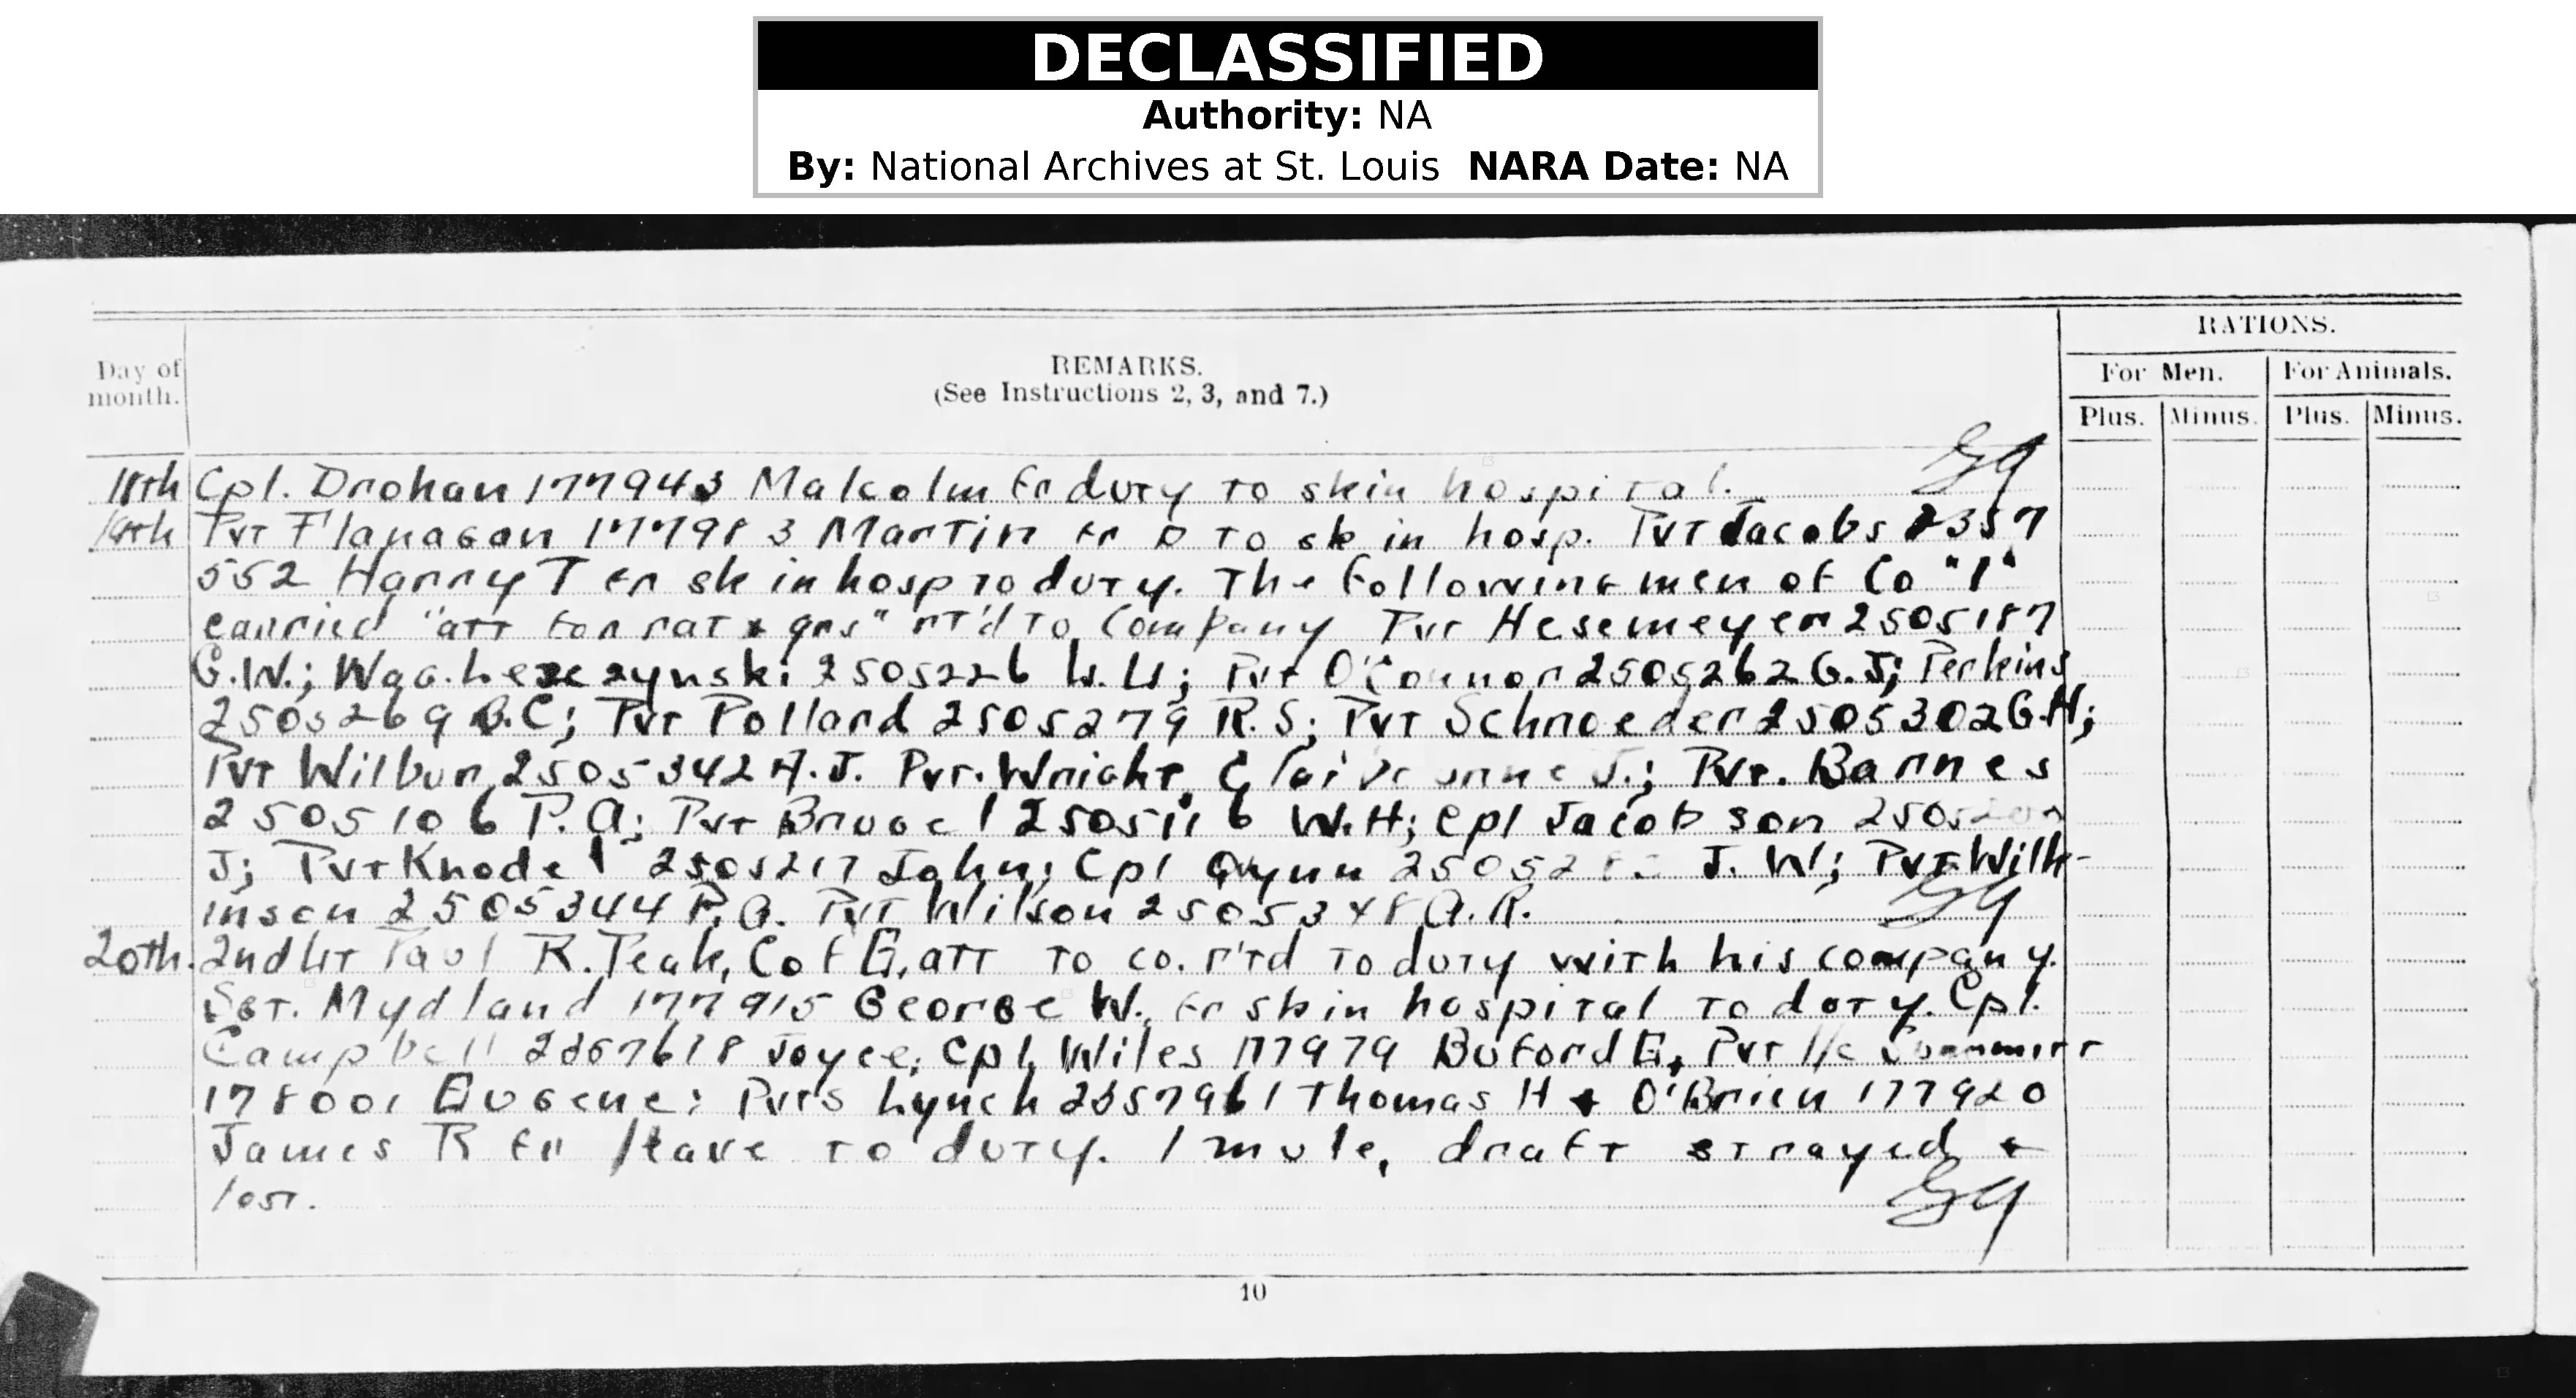 DECLASSIFIED
Authority: NA
By: National Archives at St. Louis NARA Date: NA
RATIONS.
Day of month.
REMARKS.
(See Instructions 2, 3, and 7.)
For Men. For Animals.
Plus. Minus. Plus. Minus.
18th Cpl. Drohan 177943 Malcolm fr duty to skin hospital.
19th Pvt Flanagan 177983 Martin fr D to skin hosp. Pvt Jacobs 2357
552 Harry T fr skin hosp to duty. The following men of Co "I"
carried "att for rat & qrs" rt'd to Company Pvt Hesemeyer 2505187
G.W.; Wag. 2505226 W.; Pvt O'Connor 2505262 G.J; Perkins
2505269 B.C; Pvt Pollard 2505279 R.S; Pvt Schroeder 2505302 G.H;
Pvt Wilbur 2505342 H.J. Pvt. Wright, J.; Pvt. Barnes
2505106 P.A; Pvt 2505116 W.H; Cpl Jacobson
J; Pvt Knodel 2505217 John; Cpl J.W; Pvt Wilk-
inson 2505344 P.G. Pvt Wilson 2505348 A.R.
20th. 2nd Lt Paul R. Peak, Co F E, att to co. r'td to duty with his company.
Sgt. Mydland 177915 George W. fr skin hospital to duty. Cpl.
Campbell Joyce; Cpl Wiles 177979 Buford E, Pvt 1/c
178001 Eugene; Pvts Lynch 2357961 Thomas H & O'Brien 177920
James R fr leave to duty. 1 mule, draft strayed &
lost.
10